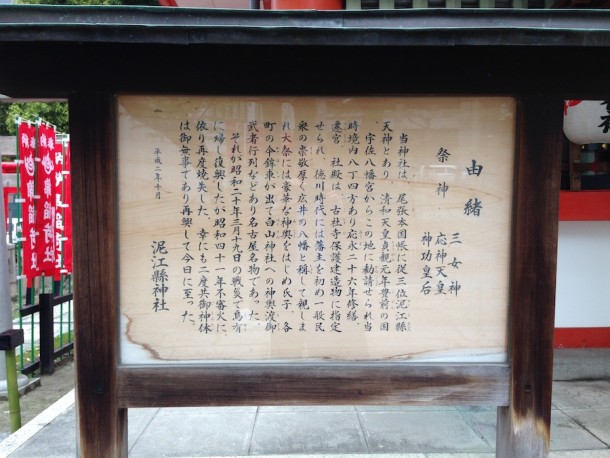 由緒
祭神
三女神
応神天皇
神功皇后
当神社は、尾張本国帳に従三位泥江縣
天神とあり、清和天皇貞観元年豊前の国
宇佐八幡宮からこの地に勧請せられ当
時境内八丁四方あり応永二十六年修繕、
遷宮、社殿は、古社寺保護建造物に指定
せられ、徳川時代には藩主を初め一般民
衆の崇敬厚く広井の八幡と称して親しま
れ大祭には豪華な神輿をはじめ氏子、各
町の傘鉾車が出て白山神社への神輿渡御
武者行列などあり名古屋名物であった。
それが昭和二十年三月十九日の戦災で烏有
に帰し復興したが昭和四十一年不審火に
依り再度焼失した、幸にも二度共御神体
は御無事であり再興して今日に至った。
平成二年十月
泥江縣神社